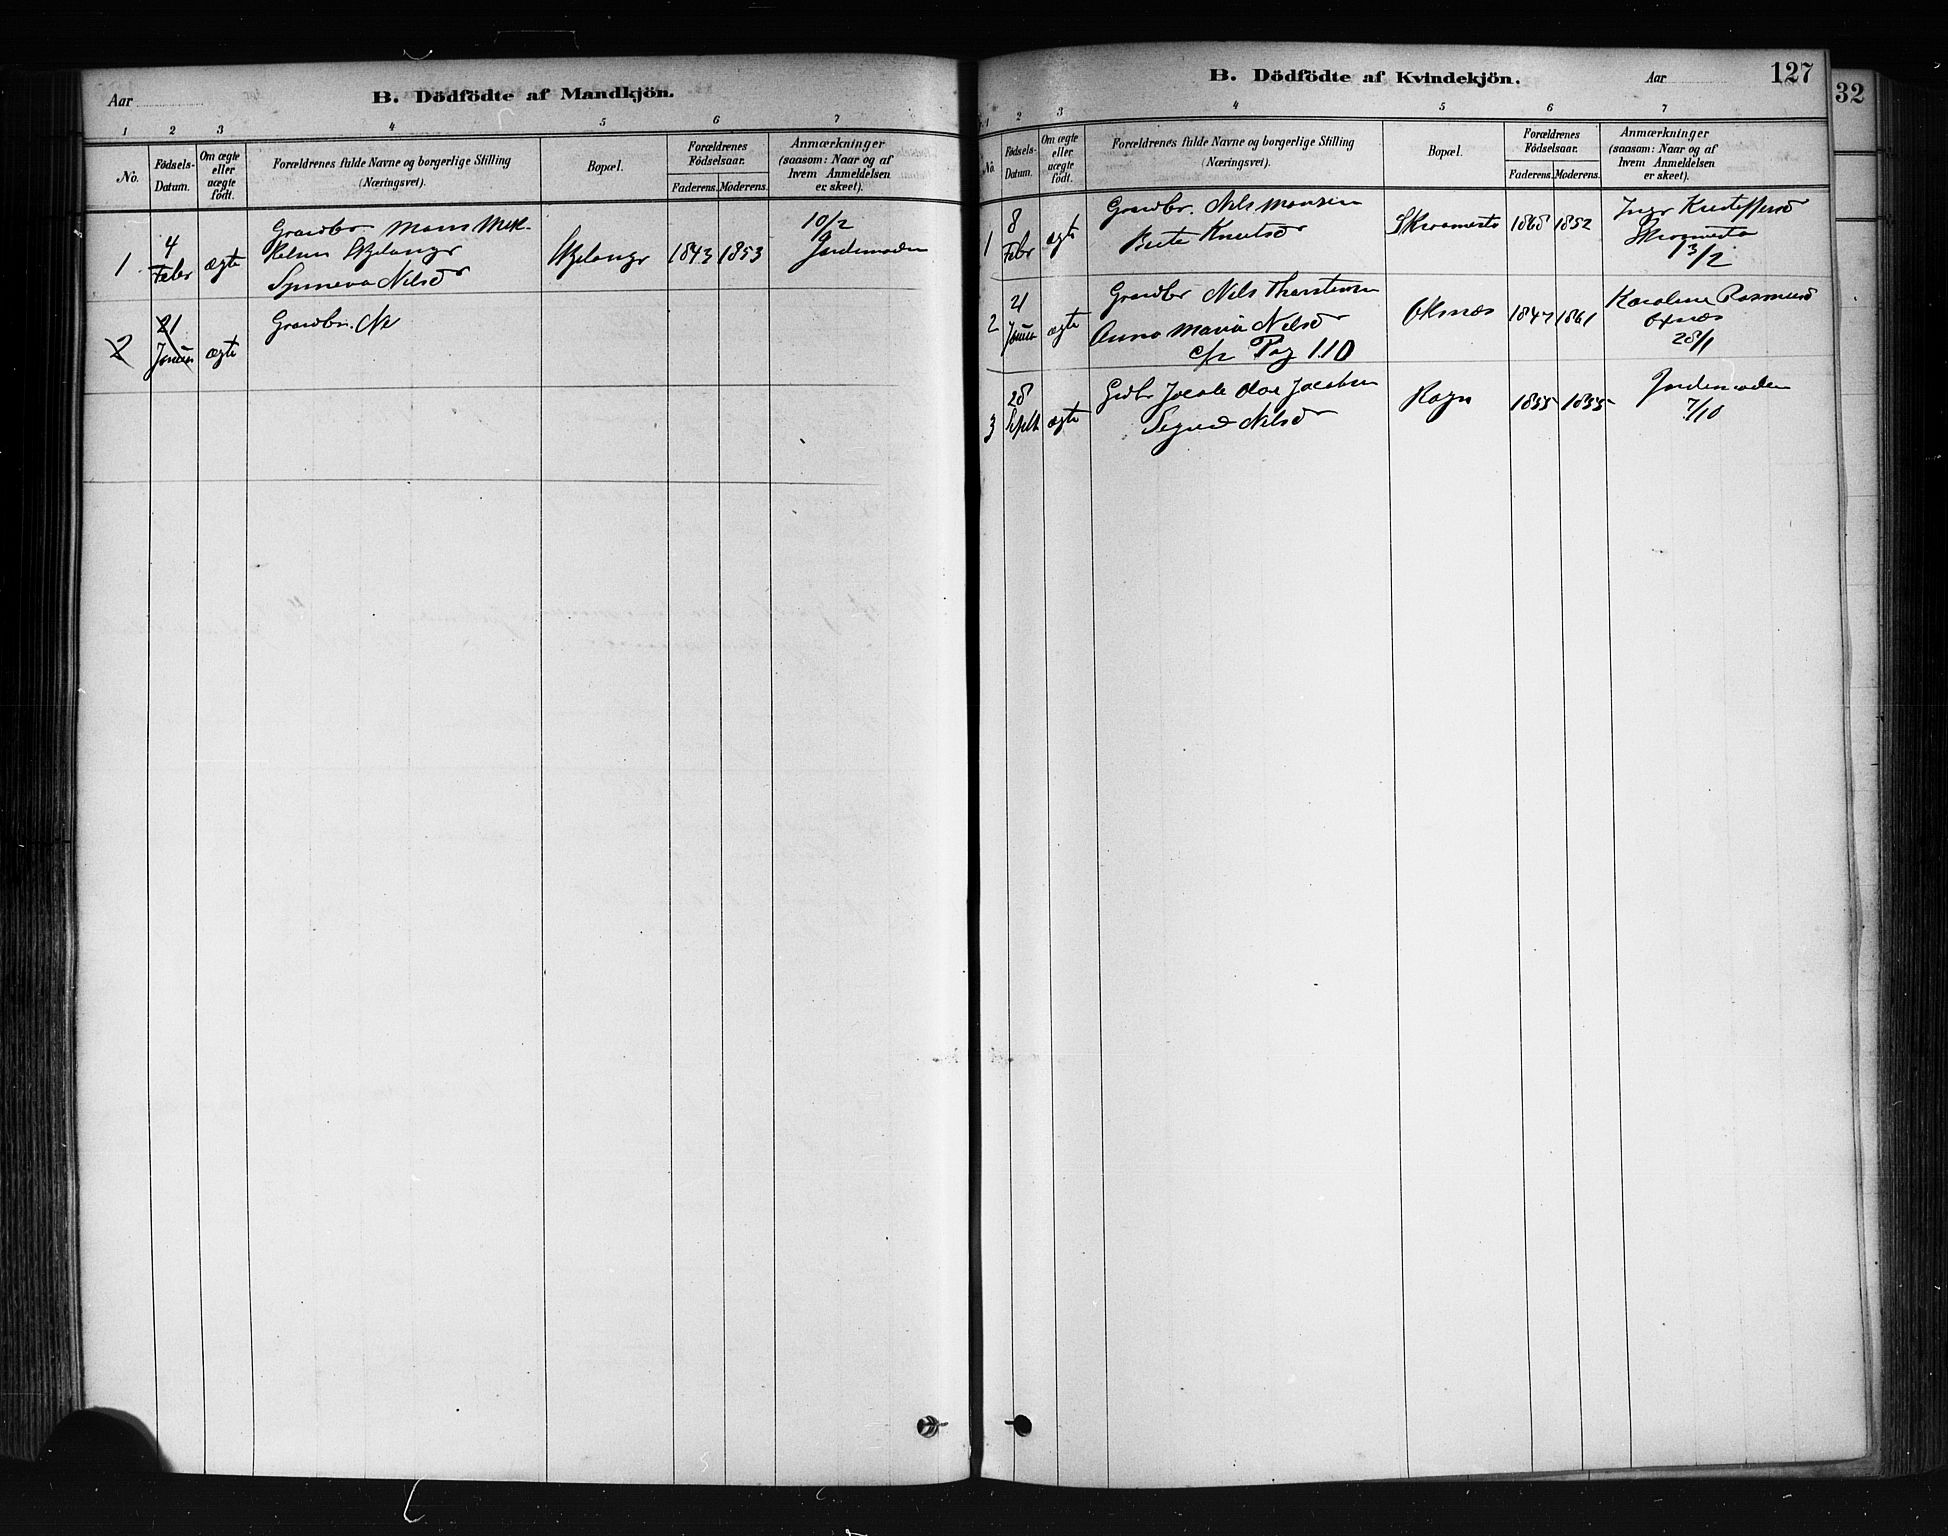 Aar
B. Dödfödte af Mandkjön.
1 2 3 4 5 6 7
No.
Födsels-Datum.
Om ægte eller uægte födt.
Forældrenes fulde Navne og borgerlige Stilling (Næringsvei).
Bopæl.
Forældrenes Födselsaar.
Faderens. Moderens.
Anmærkninger (saasom: Naar og af hvem Anmeldelsen er skeet).
1
4 Febr
ægte
Gaardbr. Mons Mik-
kelsen Skjelanger
Synneva Nilsd
Skjelanger
1843 1853
10/2
Jordemoderen
2
21 Januar
ægte
Gaardbr. Ne
B. Dödfödte af Kvindekjön.
Aar
127
32
1 2 3 4 5 6 7
No.
Födsels-Datum.
Om ægte eller uægte födt.
Forældrenes fulde Navne og borgerlige Stilling (Næringsvei).
Bopæl.
Forældrenes Födselsaar.
Faderens. Moderens.
Anmærkninger (saasom: Naar og af hvem Anmeldelsen er skeet).
1
8 Febr
ægte
Gaardbr. Nils Monsen
Brita Knutsd
1852
Inger
13/2
2
21 Januar
ægte
Gaardbr Nils Thorstensen
Anna Maria Nilsd
cfr Pag 110
Oksnæs
1847 1861
Karoline Rasmusd
Oxnæs
28/1
3
28 Septb
ægte
Grdbr Jacob Olai Jacobsen
Sigrid Nilsd
Rogn
1855 1855
Jordemoderen
7/10